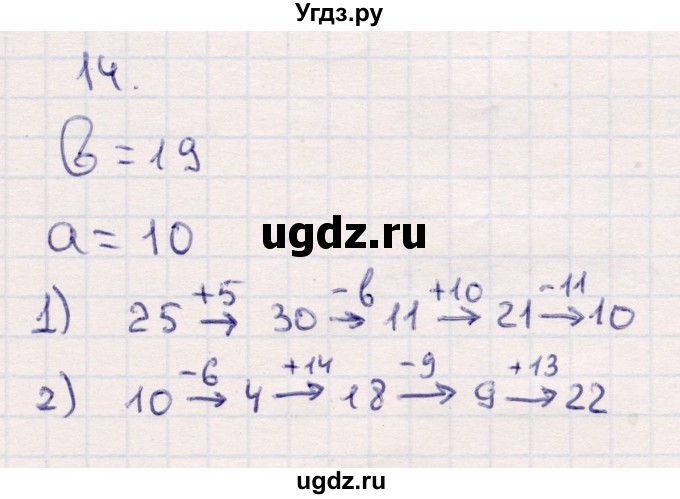 Угдз.ру
14.
b = 19
a = 10
ugdz.ru
1) 25 +5→ 30 -b→ 11 +10→ 21 -11→ 10
2) 10 -6→ 4 +14→ 18 -9→ 9 +13→ 22
ugdz.ru